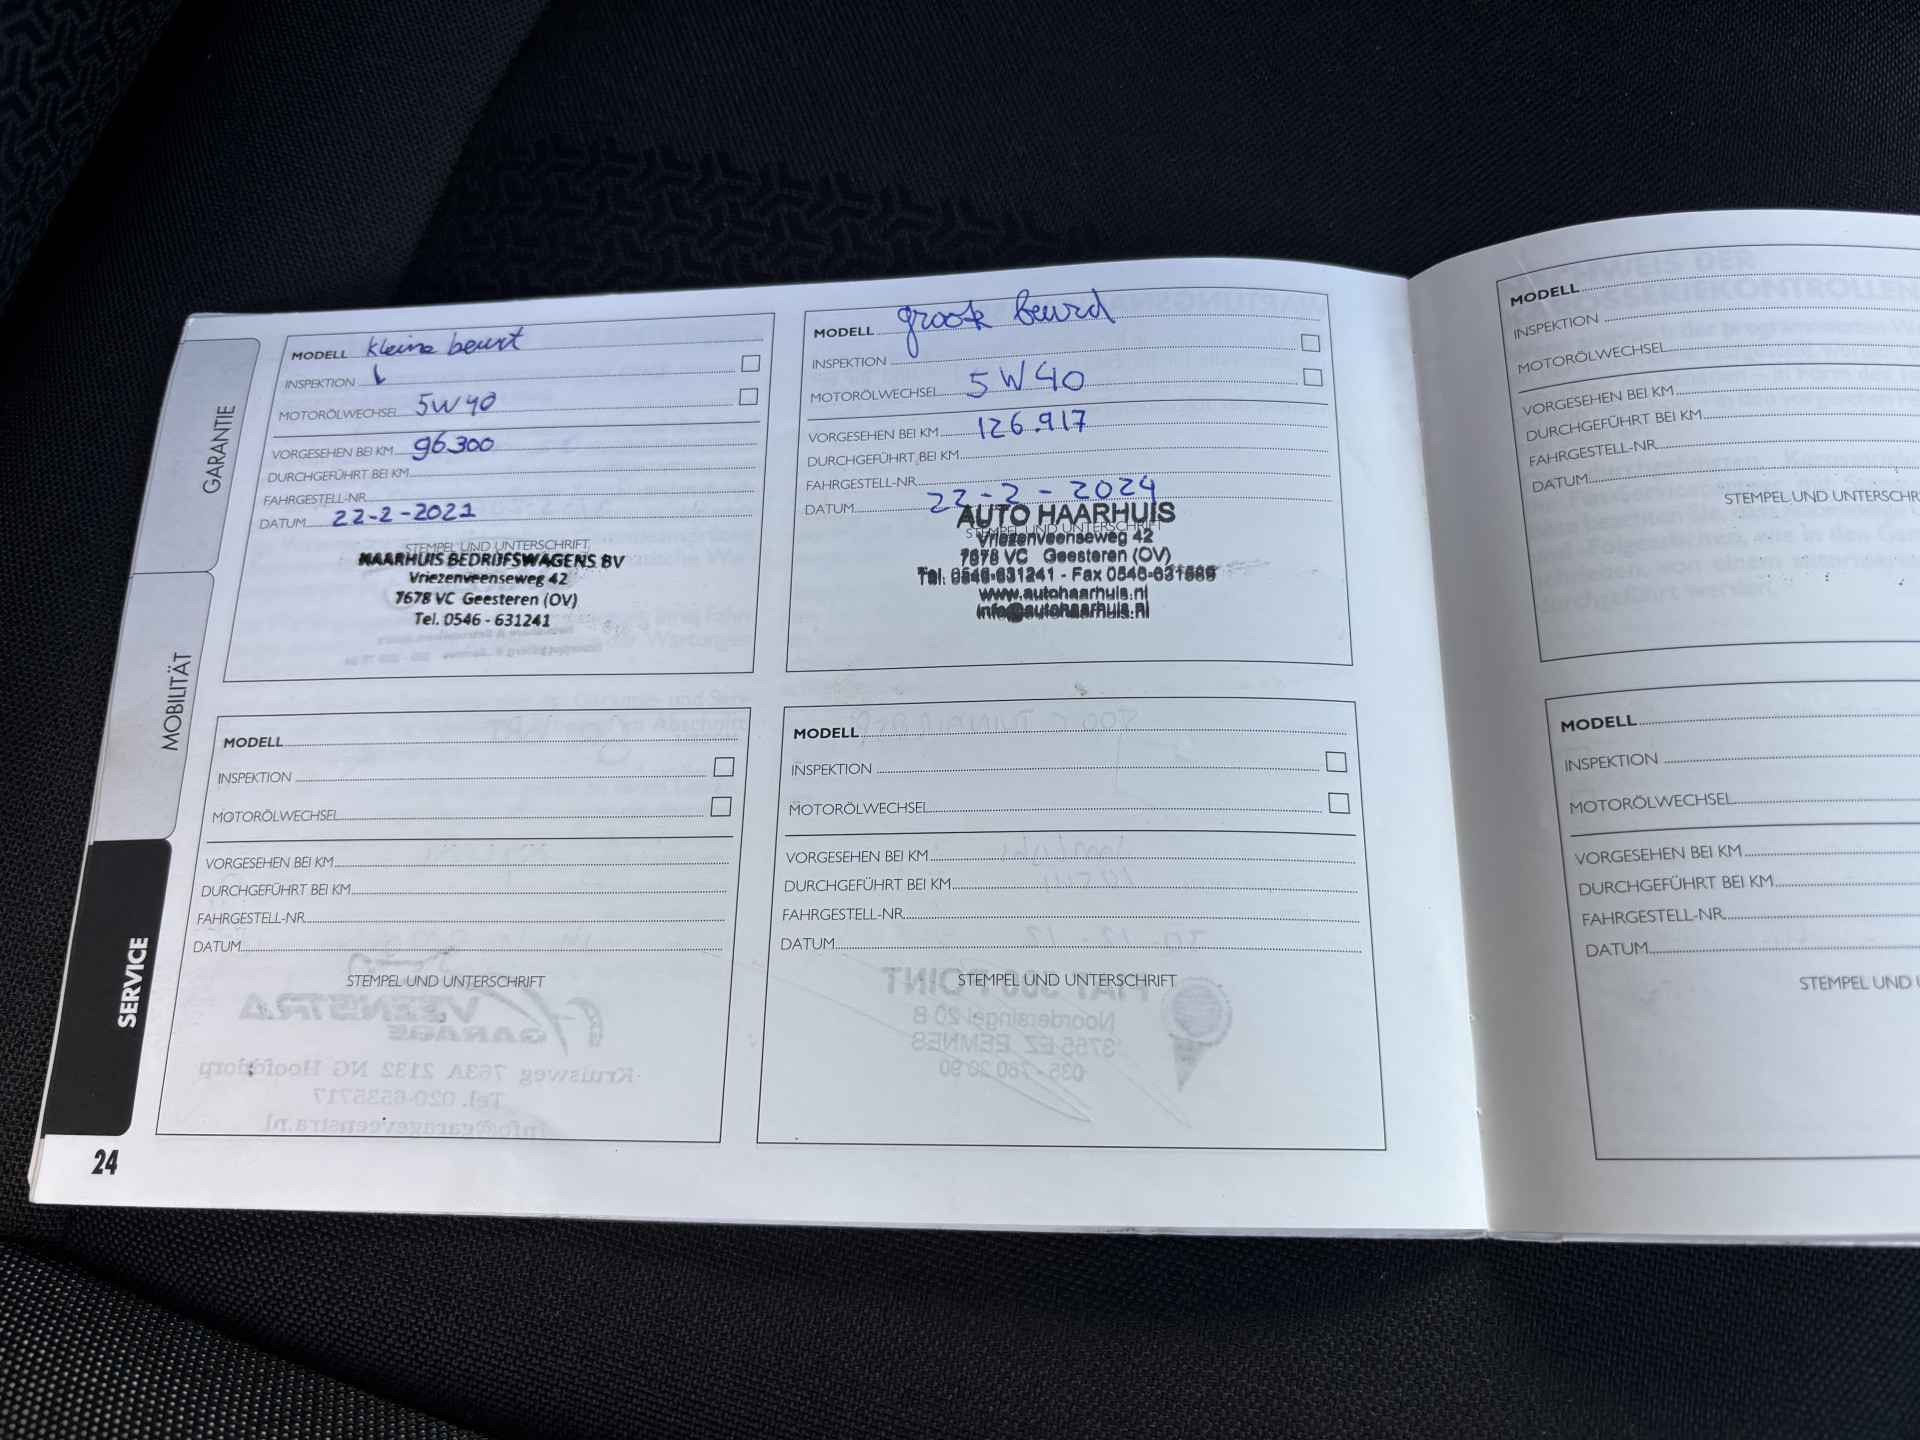 GARANTIE
MOBILITÄT
SERVICE
MODELL kleine beurt
INSPEKTION
MOTORÖLWECHSEL 5W40
VORGESEHEN BEI KM 96.300
DURCHGEFÜHRT BEI KM
FAHRGESTELL-NR
DATUM 22-2-2022
STEMPEL UND UNTERSCHRIFT
HAARHUIS BEDRIJFSWAGENS BV
Vriezenveenseweg 42
7678 VC Geesteren (OV)
Tel. 0546 - 631241
MODELL groote beurd
INSPEKTION
MOTORÖLWECHSEL 5W40
VORGESEHEN BEI KM 126.917
DURCHGEFÜHRT BEI KM
FAHRGESTELL-NR
DATUM 22-2-2024
STEMPEL UND UNTERSCHRIFT
AUTO HAARHUIS
Vriezenveenseweg 42
7678 VC Geesteren (OV)
Tel: 0546-631241 - Fax
www.autohaarhuis.nl
info@autohaarhuis.nl
MODELL
INSPEKTION
MOTORÖLWECHSEL
VORGESEHEN BEI KM
DURCHGEFÜHRT BEI KM
FAHRGESTELL-NR
DATUM
STEMPEL UND UNTERSCHRIFT
MODELL
INSPEKTION
MOTORÖLWECHSEL
VORGESEHEN BEI KM
DURCHGEFÜHRT BEI KM
FAHRGESTELL-NR
DATUM
STEMPEL UND UNTERSCHRIFT
24
MODELL
INSPEKTION
MOTORÖLWECHSEL
VORGESEHEN BEI KM
DURCHGEFÜHRT BEI KM
FAHRGESTELL-NR
DATUM
STEMPEL UND UNTERSCHR
MODELL
INSPEKTION
MOTORÖLWECHSEL
VORGESEHEN BEI KM
DURCHGEFÜHRT BEI KM
FAHRGESTELL-NR
DATUM
STEMPEL UND U